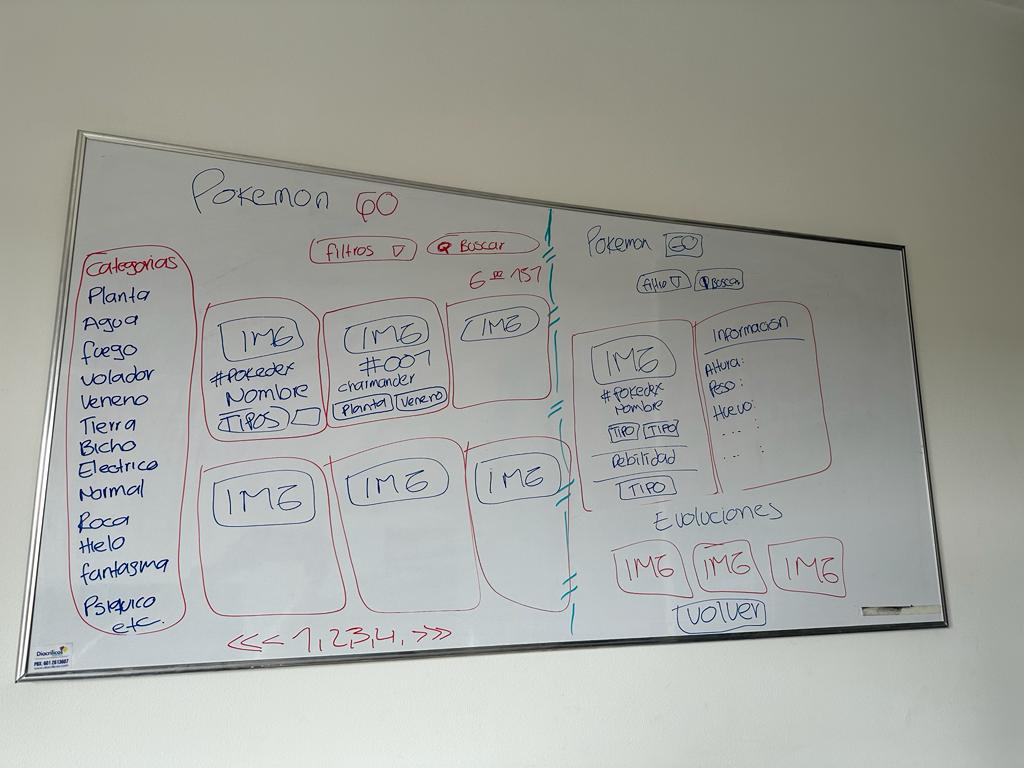 Pokemon GO
filtros ▽
Buscar
6 DE 151
Categorias
Planta
Agua
fuego
Volador
Veneno
Tierra
Bicho
Electrico
Normal
Roca
Hielo
fantasma
Psiquico
etc.
IMG
#Pokedex
Nombre
TIPOS
IMG
#007
charmander
Planta Veneno
IMG
IMG
IMG
IMG
<<< 1,2,3,4, >>>
Pokemon GO
Filtro ▽ Buscar
IMG
#Pokedex
Nombre
TIPO TIPO
Debilidad
TIPO
Información
Altura:
Peso:
Huevo:
... :
... :
Evoluciones
IMG IMG IMG
Volver
Diacrílicos
PBX. 601 2613687